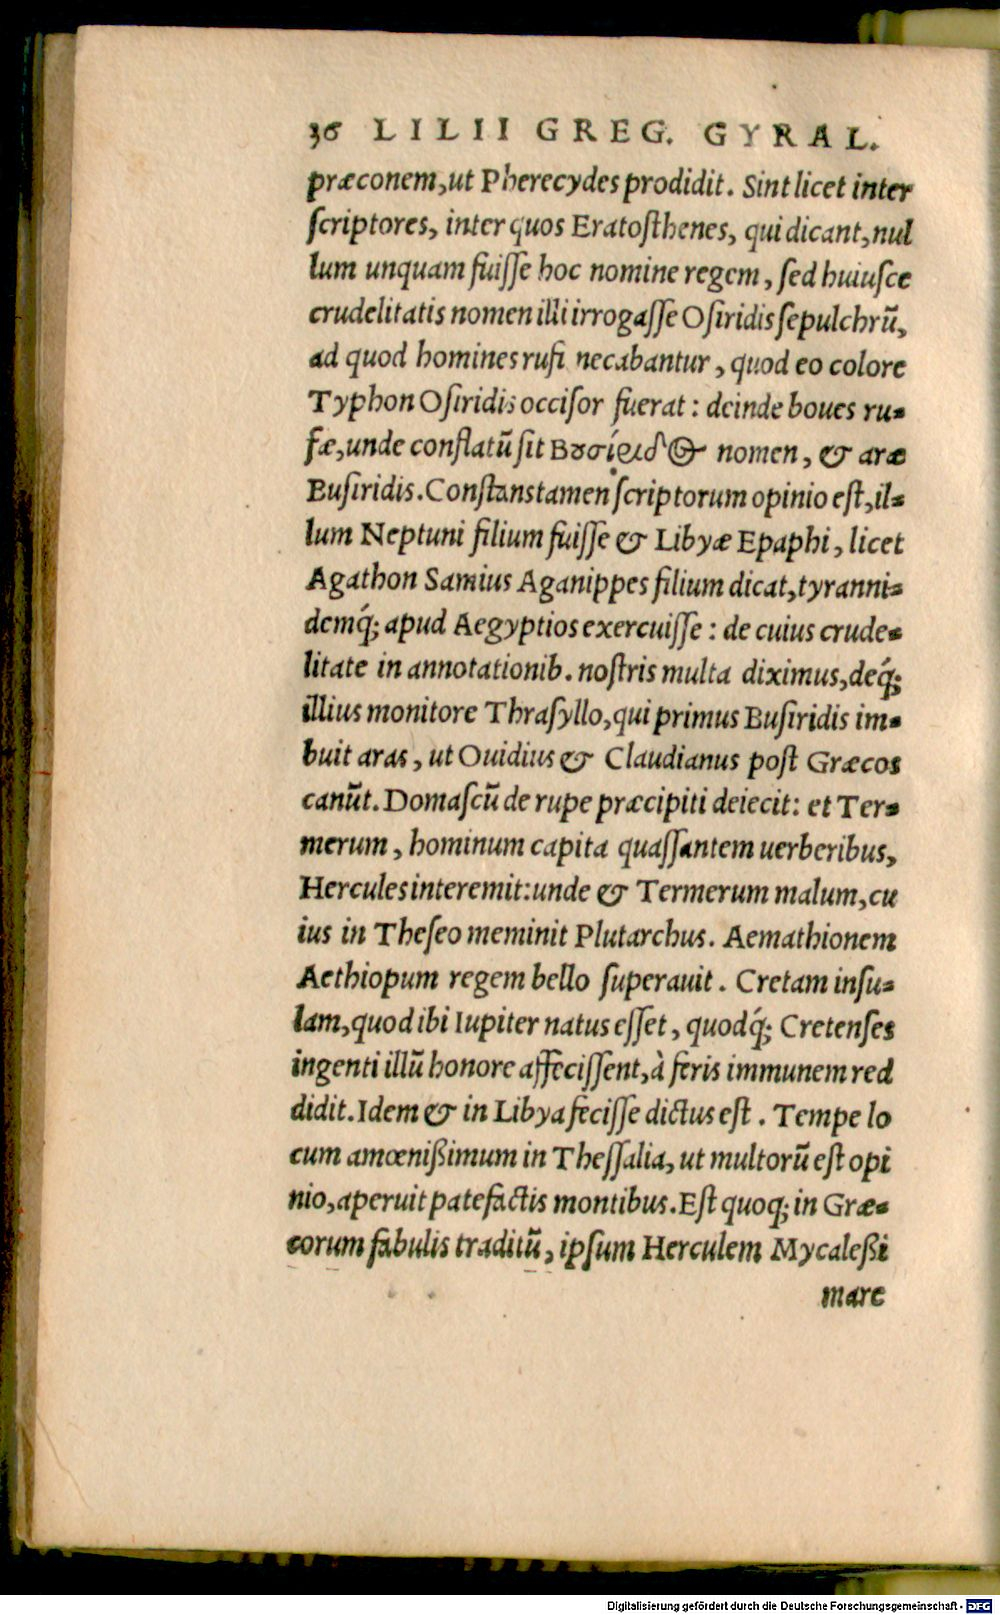 36 LILII GREG. GYRAL.
præconem, ut Pherecydes prodidit. Sint licet inter
ſcriptores, inter quos Eratoſthenes, qui dicant, nul
lum unquam fuiſſe hoc nomine regem, ſed huiuſce
crudelitatis nomen illi irrogaſſe Oſiridis ſepulchrū,
ad quod homines rufi necabantur, quod eo colore
Typhon Oſiridis occiſor fuerat: deinde boues ru-
fæ, unde conflatū ſit Βουσίριδος nomen, & aræ
Buſiridis. Conſtans tamen ſcriptorum opinio eſt, il-
lum Neptuni filium fuiſſe & Libyæ Epaphi, licet
Agathon Samius Aganippes filium dicat, tyranni-
demq́; apud Aegyptios exercuiſſe: de cuius crude-
litate in annotationib. noſtris multa diximus, deq́;
illius monitore Thraſyllo, qui primus Buſiridis im-
buit aras, ut Ouidius & Claudianus poſt Græcos
canūt. Domaſcū de rupe præcipiti deiecit: et Ter-
merum, hominum capita quaſſantem uerberibus,
Hercules interemit: unde & Termerum malum, cu
ius in Theſeo meminit Plutarchus. Aemathionem
Aethiopum regem bello ſuperauit. Cretam inſu-
lam, quod ibi Iupiter natus eſſet, quodq́; Cretenſes
ingenti illū honore affeciſſent, à feris immunem red
didit. Idem & in Libya feciſſe dictus eſt. Tempe lo
cum amœnißimum in Theſſalia, ut multorū eſt opi
nio, aperuit patefactis montibus. Eſt quoq; in Græ-
corum fabulis traditū, ipſum Herculem Mycaleßi
mare
Digitalisierung gefördert durch die Deutsche Forschungsgemeinschaft - DFG